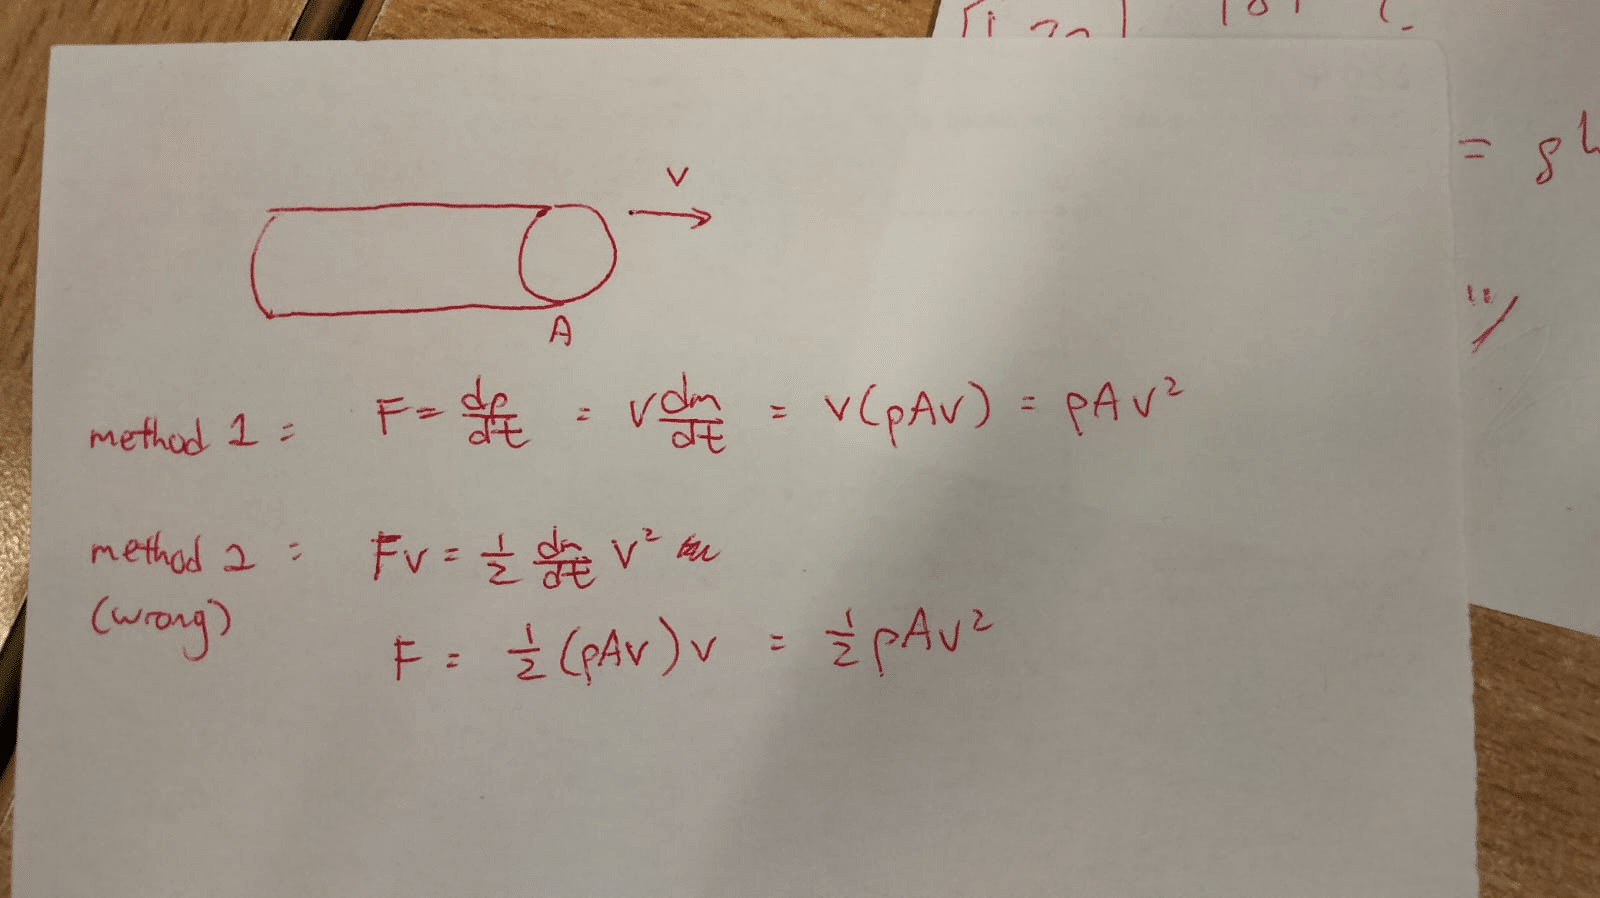 V
A
method 1 : F = dp/dt = v dm/dt = v(ρAv) = ρAv²
method 2 : Fv = 1/2 dm/dt v²
(wrong)
F = 1/2 (ρAv)v = 1/2 ρAv²